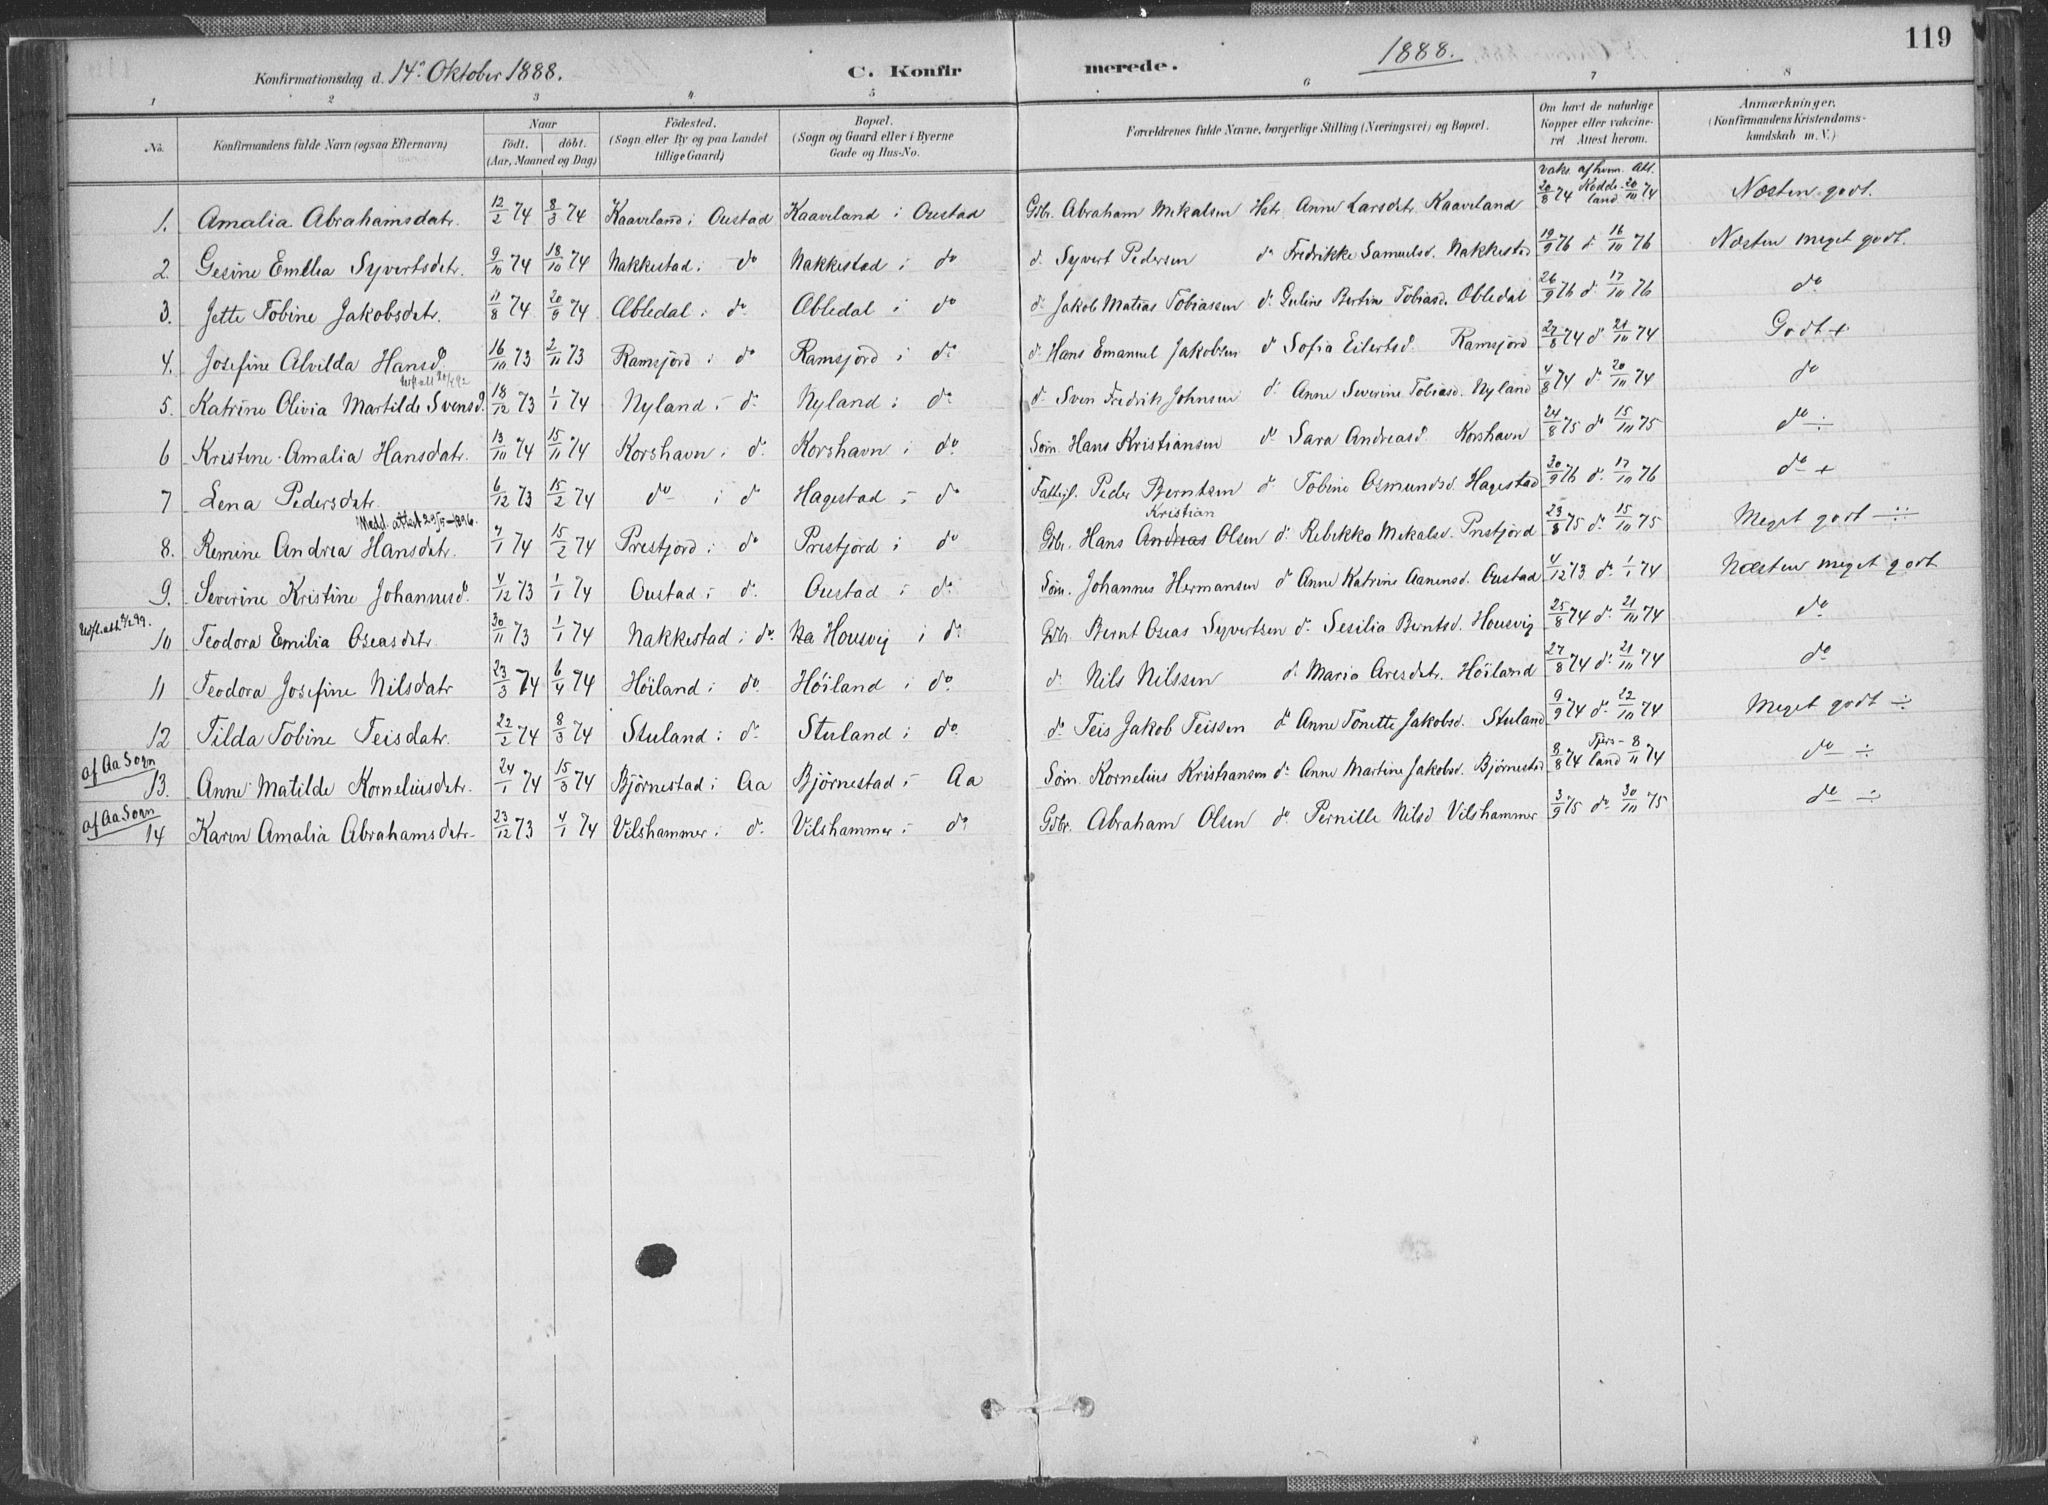 119
Konfirmationsdag d. 14de Oktober 1888. C. Konfirmerede. 1888.
1 2 3 4 5 6 7 8
No. Konfirmandens fulde Navn (ogsaa Efternavn) Naar født. døbt. (Aar, Maaned og Dag) Fødested. (Sogn eller By og paa Landet tillige Gaard) Bopæl. (Sogn og Gaard eller i Byerne Gade og Hus-No. Forældrenes fulde Navne, borgerlige Stilling (Næringsvei) og Bopæl. Om havt de naturlige Kopper eller vakcineret Attest herom. Anmærkninger. (Konfirmandens Kristendomskundskab m. V.)
vaks. af hvem Att.
1. Amalia Abrahamsdatr. 12/2 74 8/3 74 Kaaveland i Oustad Kaaveland i Oustad Gdbr. Abraham Mikalsen Hstr. Anne Larsdatr. Kaaveland 20/8 74 Kodde-land 20/10 74 Næsten godt.
2. Gesine Emilia Syvertsdatr. 9/10 74 18/10 74 Nakkestad i do Nakkestad i do do Syvert Pedersen do Fredrikke Samuelsd. Nakkestad 19/9 76 do 16/10 76 Næsten meget godt.
3. Jette Tobine Jakobsdatr. 11/8 74 20/9 74 Øbledal i do Øbledal i do do Jakob Matias Tobiassen do Guline Bertine Tobiasd. Øbledal 26/9 76 do 17/10 76 do
4. Josefine Alvilda Hansd. 16/10 73 2/11 73 Ramsjord i do Ramsjord i do do Hans Emanuel Jakobsen do Sofia Eilertsd. Ramsjord 27/8 74 do 21/10 74 Godt +
5. Katrine Olivia Martilde Svensd. 18/12 73 1/1 74 Nyland i do Nyland i do do Sven Fredrik Johnsen do Anne Severine Tobiasd. Nyland 4/8 74 do 20/10 74 do
6 Kristine Amalia Hansdatr. 13/10 74 15/11 74 Korshavn i do Korshavn i do Søm. Hans Kristiansen do Sara Andreasd. Korshavn 24/8 75 do 15/10 75 do ÷
7 Lena Pedersdatr. 6/12 73 15/2 74 do i do Hagestad i do Fattigl. Peder Berntsen do Tobine Osmundsd. Hagestad 30/9 76 do 17/10 76 do +
Medd. attest 29/5-1896. Kristian
8. Remine Andrea Hansdatr. 7/1 74 15/2 74 Prestjord i do Prestjord i do Gdbr. Hans Andreas Olsen do Rebekka Mikalsd. Prestjord 23/8 75 do 15/10 75 Meget godt ÷
9. Severine Kristine Johannesd. 4/12 73 1/1 74 Oustad i do Oustad i do Søm. Johannes Hermansen do Anne Katrine Aanensd. Oustad 4/12 73 do 1/1 74 Næsten meget godt
10 Teodora Emilia Oseasdatr. 30/11 73 1/1 74 Nakkestad i do Na Housvig i do Gdbr. Bernt Oseas Syvertsen do Sesilia Berntsd. Housvig 25/8 74 do 21/10 74 do
11 Teodora Josefine Nilsdatr 23/3 74 6/4 74 Høiland i do Høiland i do do Nils Nilssen do Maria Aresdatr. Høiland 27/8 74 do 21/10 74 do
12 Tilda Tobine Teisdatr. 22/2 74 8/3 74 Stuland i do Stuland i do do Teis Jakob Teissen do Anne Tonette Jakobsd. Stuland 9/9 74 do 22/10 74 Meget godt ÷
af Aa Sogn
13. Anne Matilde Korneliusdatr. 24/1 74 15/3 74 Bjørnestad i Aa Bjørnestad i Aa Søm. Kornelius Kristiansen do Anne Martine Jakobsd. Bjørnestad 8/8 74 8/11 74 do ÷
af Aa Sogn
14 Karen Amalia Abrahamsdatr. 23/12 73 4/1 74 Vilshammer i do Vilshammer i do Gdbr. Abraham Olsen do Pernille Nilsd Vilshammer 3/9 75 do 30/10 75 do ÷